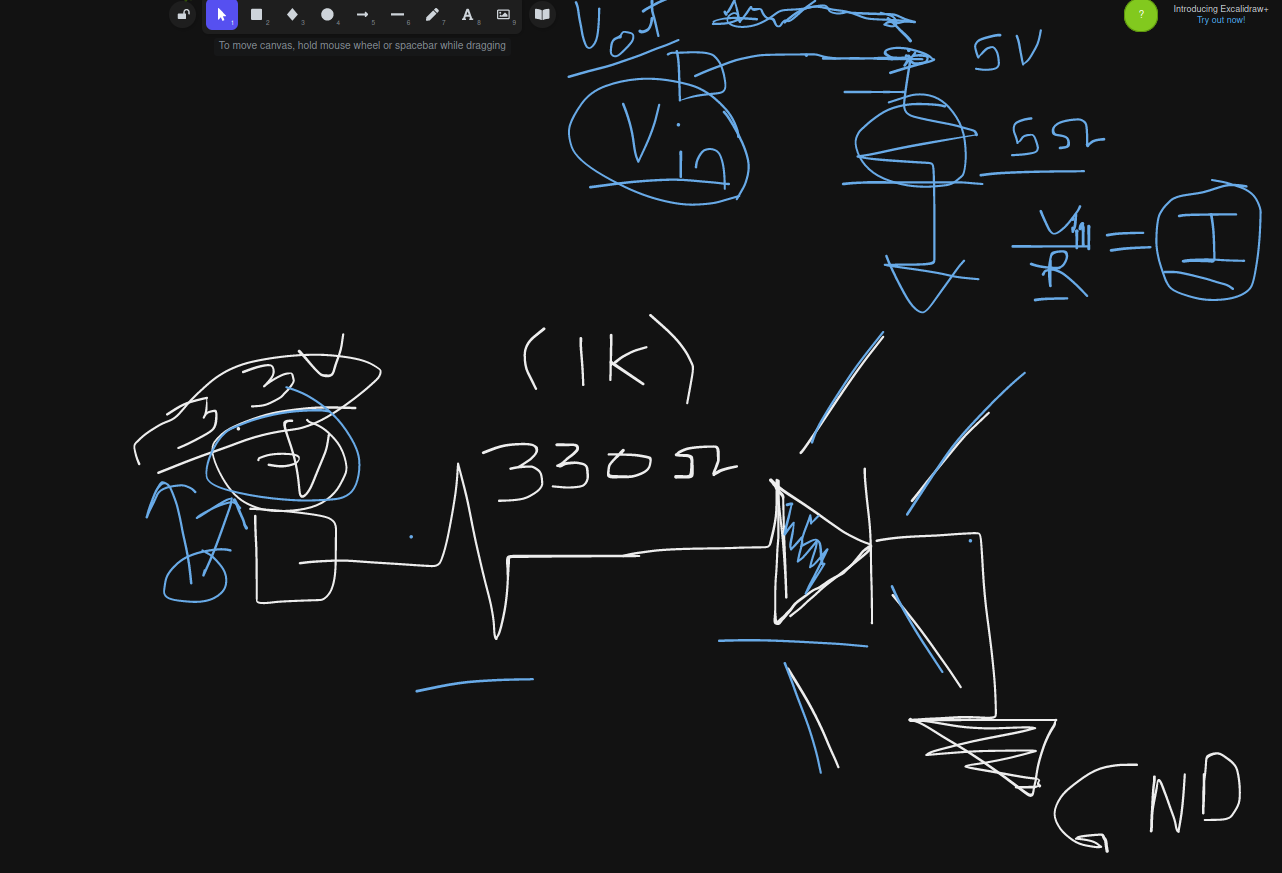 1
2
3
4
5
6
A 8
7
9
To move canvas, hold mouse wheel or spacebar while dragging
?
Introducing Excalidraw+
Try out now!
5V
Vin
5Ω
R
=
I
(1K)
3.3V
330Ω
GND